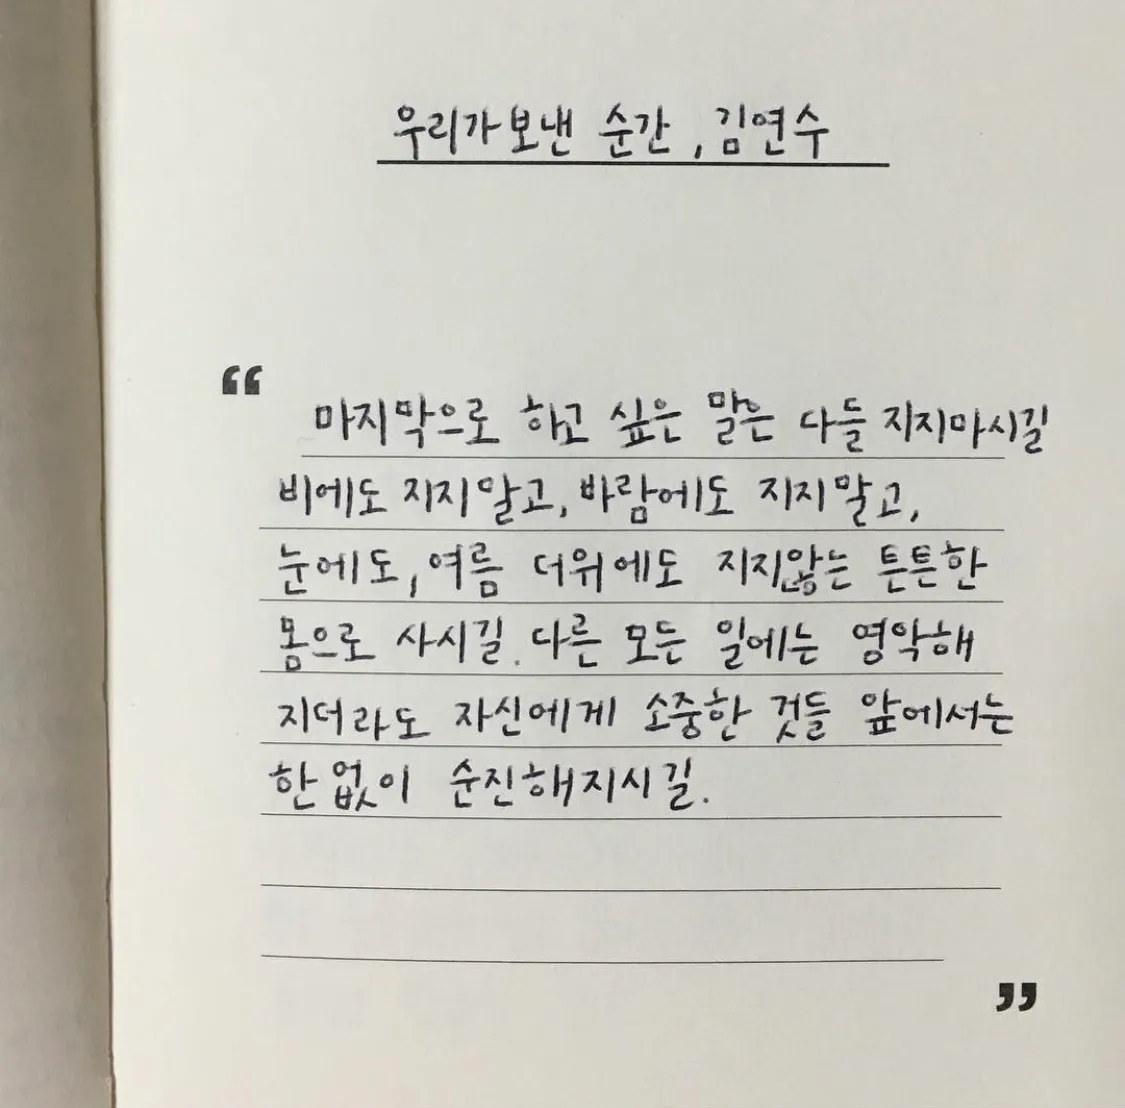 우리가 보낸 순간, 김연수
“
마지막으로 하고 싶은 말은 다들 지지마시길
비에도 지지말고, 바람에도 지지말고,
눈에도, 여름 더위에도 지지않는 튼튼한
몸으로 사시길. 다른 모든 일에는 영악해
지더라도 자신에게 소중한 것들 앞에서는
한없이 순진해지시길.
”